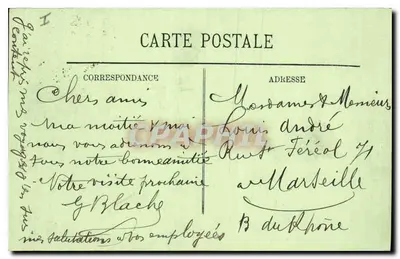 I
CARTE POSTALE
CORRESPONDANCE
ADRESSE
Chers amis
ma moitié & moi
nous vous adressons
tous notre bonne amitié
Votre visite prochaine
G Blache
mes salutations a vos employées
Mesdames & Monsieur
Louis André
Rue St Féréol 71
Marseille
B du Rhône
mes voyages
content
CPARAMA